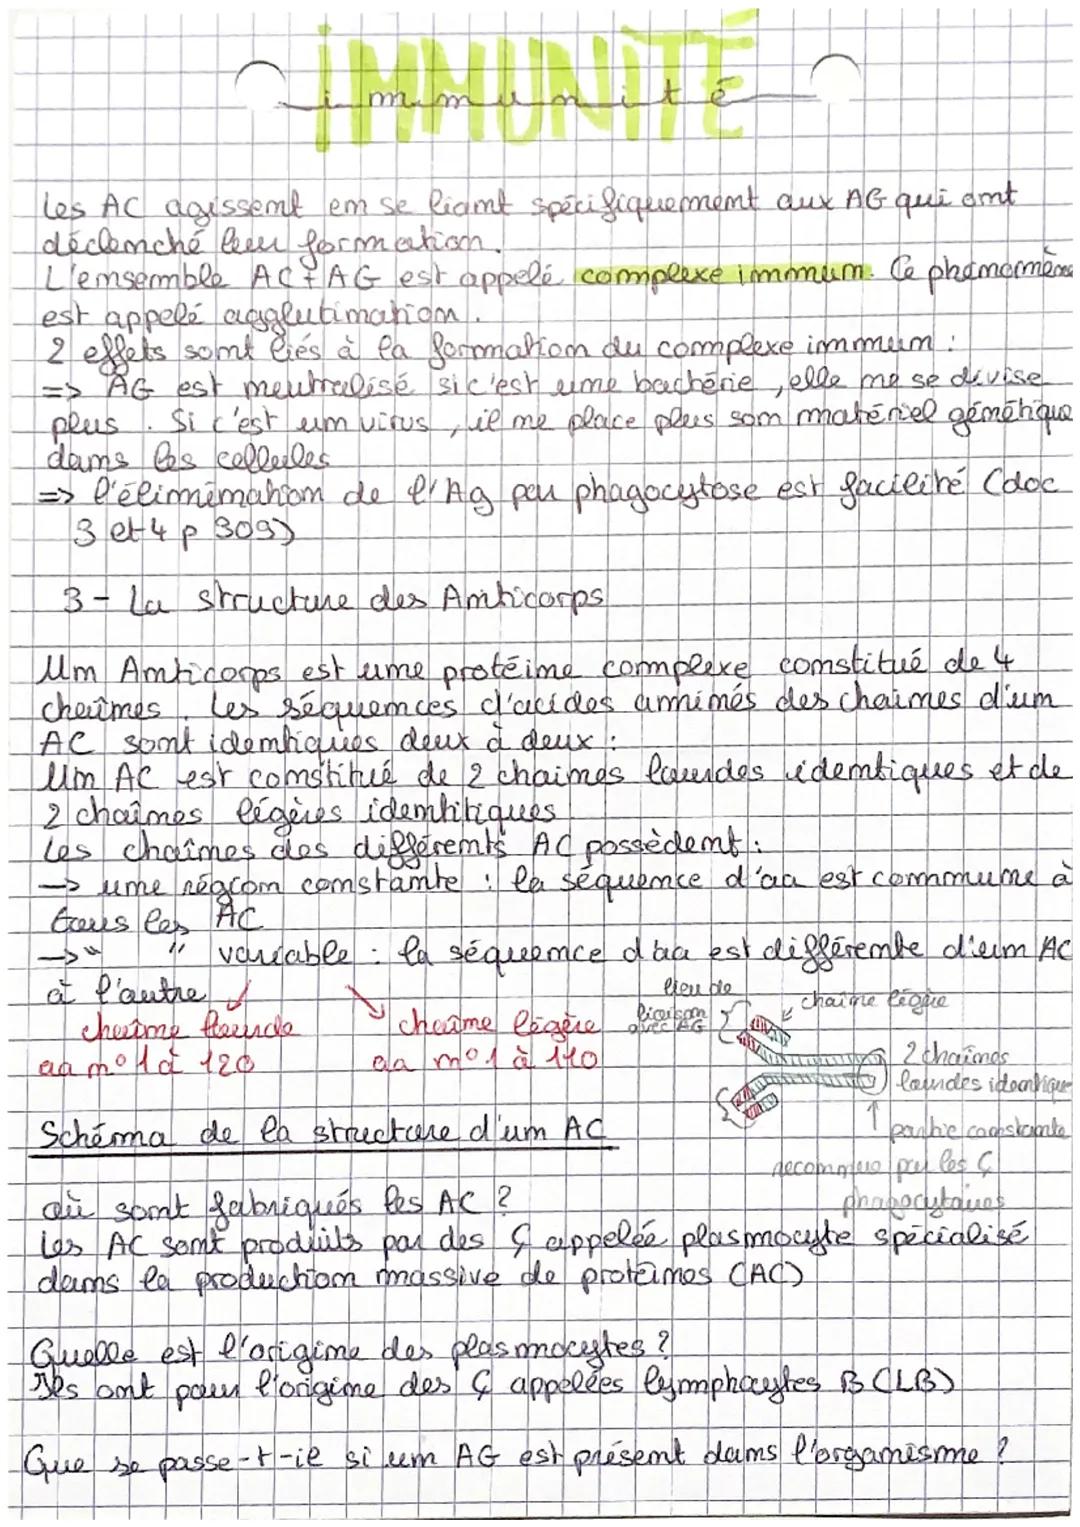 IMMUNITÉ
immunité
Les AC agissent en se liant spécifiquement aux AG qui ont
déclenché leur formation.
L'ensemble AC + AG est appelé complexe immum. Ce phénomène
est appelé agglutination.
2 effets sont liés à la formation du complexe immum :
=> AG est neutralisé si c'est une bactérie, elle ne se divise
plus. Si c'est un virus, il ne place plus son matériel génétique
dans les cellules
=> l'élimination de l'Ag par phagocytose est facilité (doc
3 et 4 p 309)
3 - La structure des Anticorps
Un Anticorps est une protéine complexe constitué de 4
chaînes. Les séquences d'acides aminés des chaînes d'un
AC sont identiques deux à deux :
Un AC est constitué de 2 chaines lourdes identiques et de
2 chaînes légères identitiques
Les chaînes des différents AC possèdent :
-> une région constante : la séquence d'aa est commune à
tous les AC
-> " " variable : la séquence d'aa est différente d'un AC
à l'autre
chaîne lourde
aa n° 1 à 120
chaîne légère
aa n° 1 à 110
lieu de
liaison
avec AG
chaîne légère
2 chaînes
lourdes identique
partie constante
reconnue par les Ç
phagocytaires
Schéma de la structure d'un AC
où sont fabriqués les AC ?
Les AC sont produits par des Ç appelée plasmocyte spécialisé
dans la production massive de protéines (AC)
Quelle est l'origine des plasmocytes ?
Ils ont pour l'origine des Ç appelées lymphocytes B (LB)
Que se passe-t-il si un AG est présent dans l'organisme ?